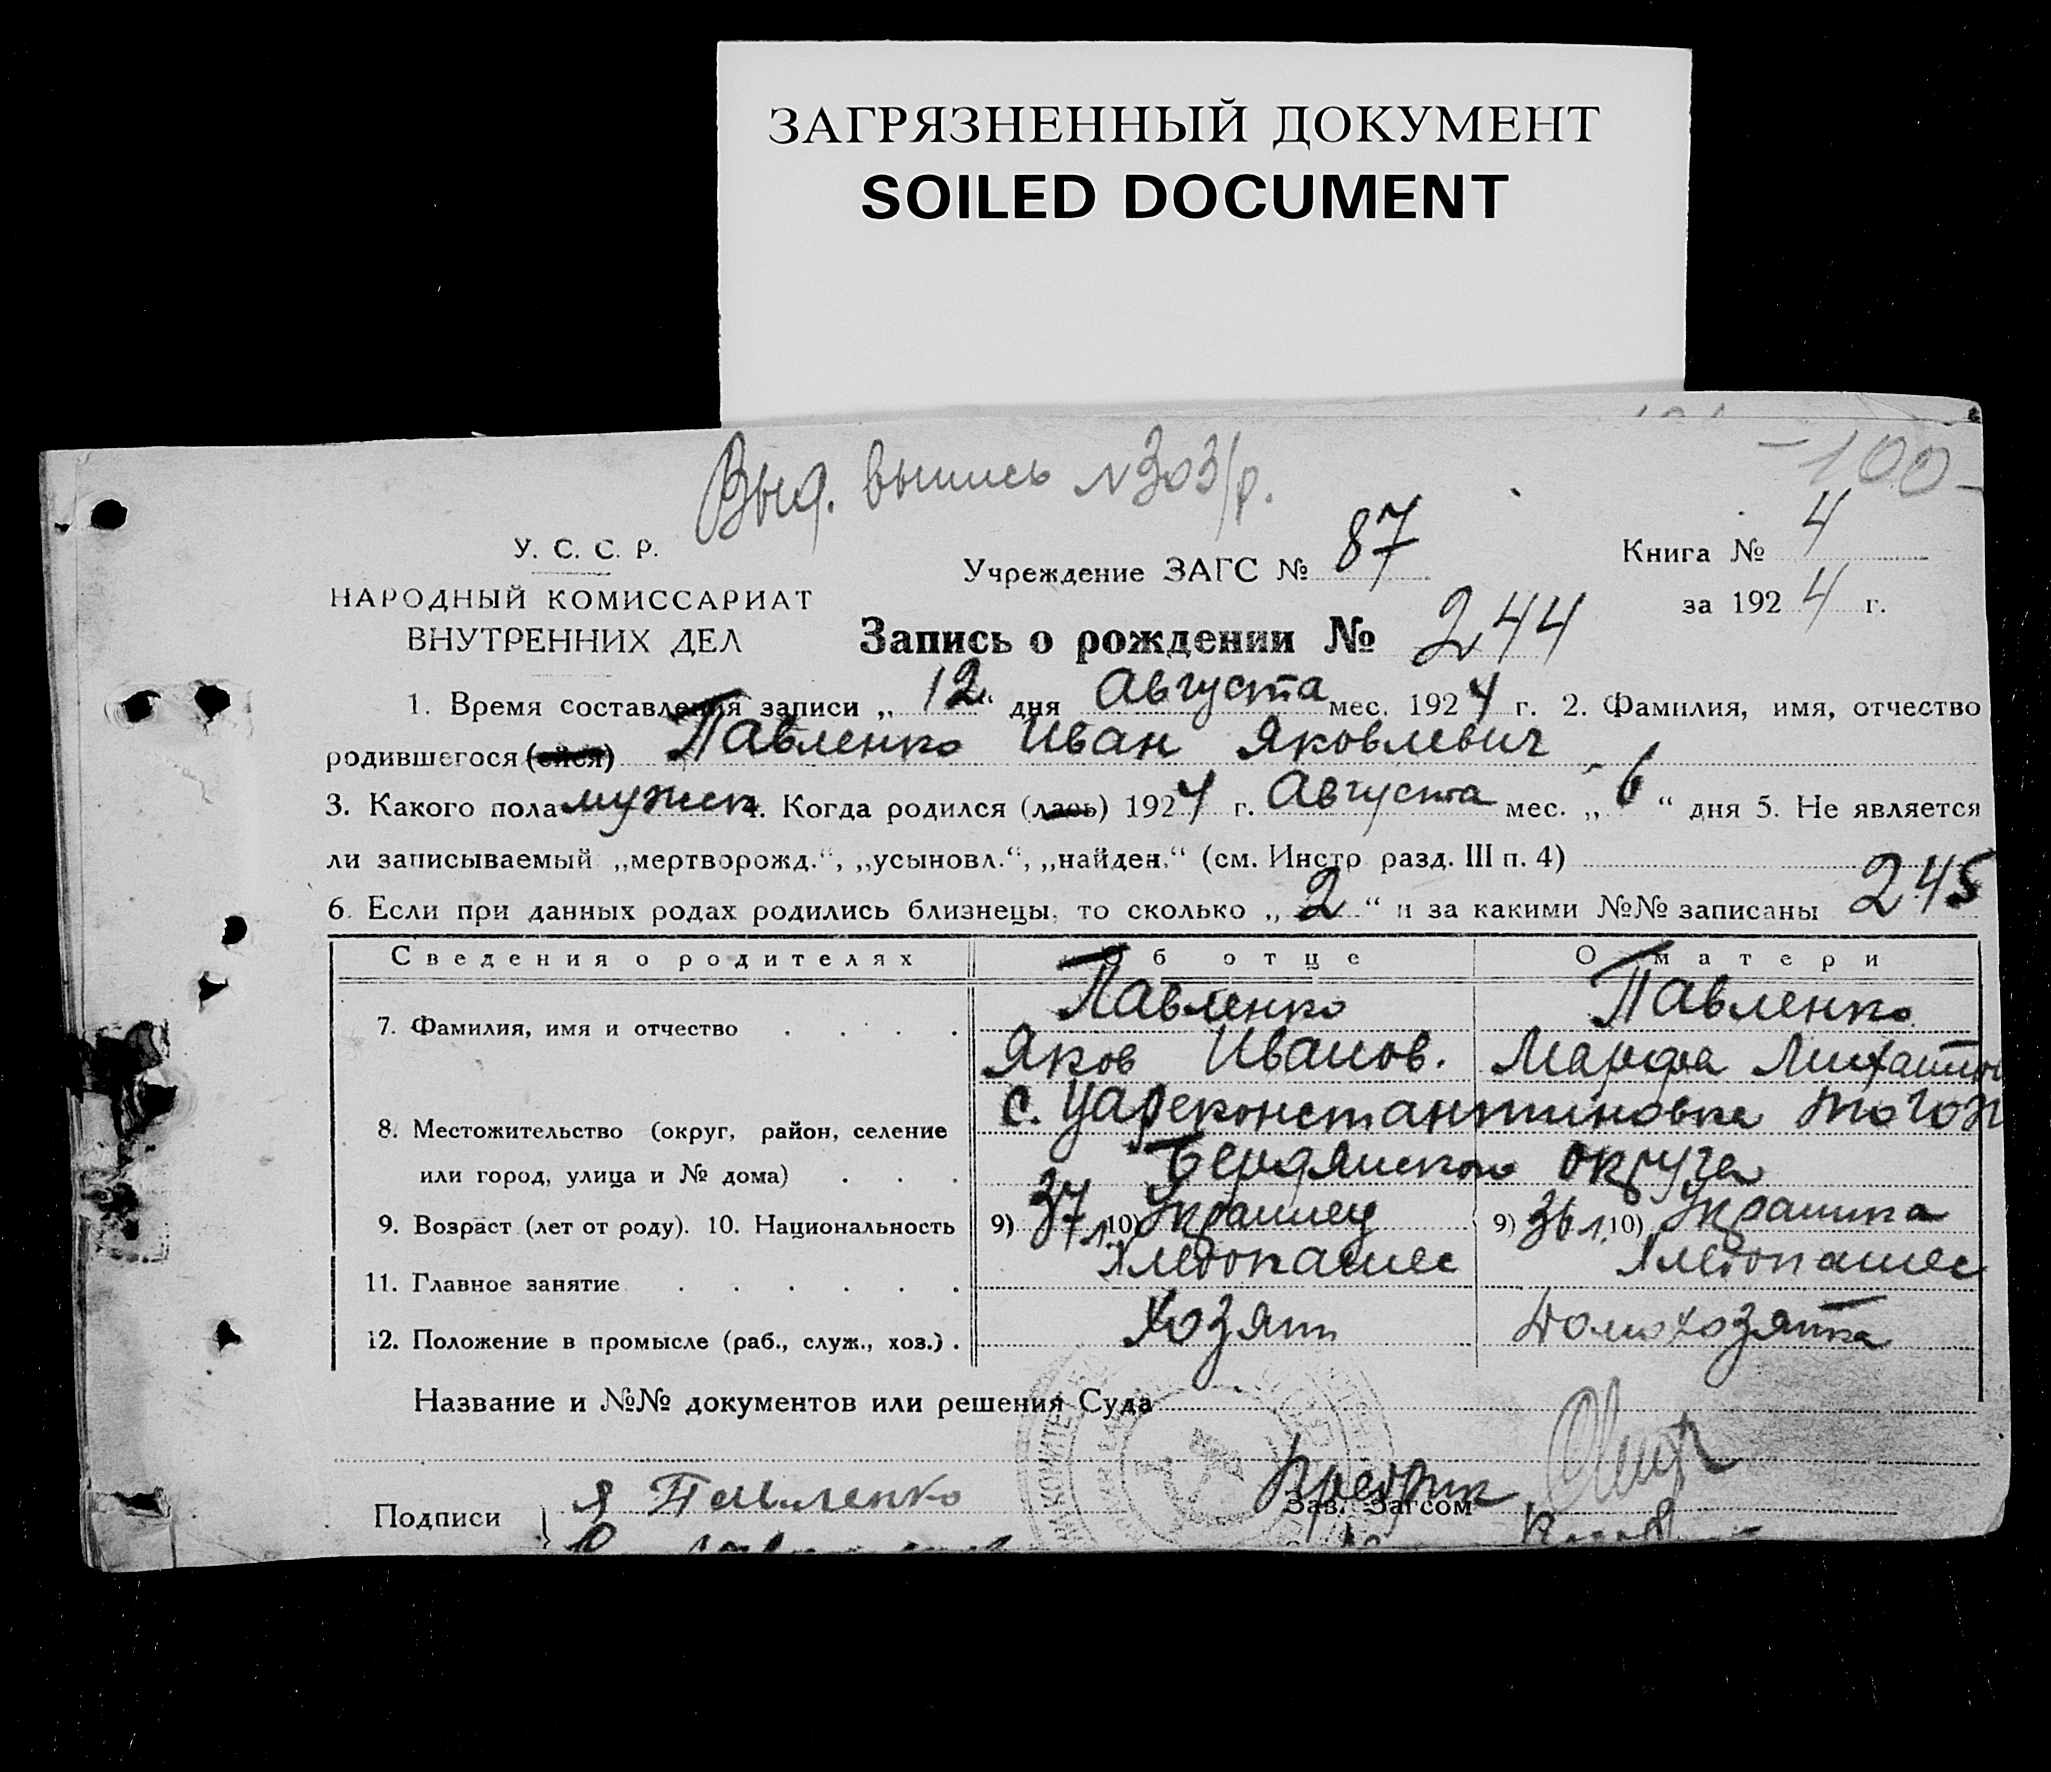 ЗАГРЯЗНЕННЫЙ ДОКУМЕНТ
SOILED DOCUMENT
-100-
Выд. выпись №303/р.
У. С. С. Р.
НАРОДНЫЙ КОМИССАРИАТ
ВНУТРЕННИХ ДЕЛ
Учреждение ЗАГС № 87
Книга № 4
за 1924 г.
Запись о рождении № 244
1. Время составления записи „12“ дня Августа мес. 1924 г. 2. Фамилия, имя, отчество
родившегося (ейся) Павленко Иван Яковлевич
3. Какого пола мужск 4. Когда родился (лась) 1924 г. Августа мес. „6“ дня 5. Не является
ли записываемый „мертворожд.“, „усыновл.“, „найден.“ (см. Инстр разд. III п. 4)
6. Если при данных родах родились близнецы, то сколько „2“ и за какими №№ записаны 245
Сведения о родителях Об отце О матери
7. Фамилия, имя и отчество . . . . Павленко Павленко
Яков Иванов. Марфа
8. Местожительство (округ, район, селение с. Цареконстантиновка того ж
или город, улица и № дома) . . . Бердянского округа
9. Возраст (лет от роду). 10. Национальность 9) 37 л. 10) Украинец 9) 36 л. 10) Украинка
11. Главное занятие . . . . . . Хлебопашес Хлебопашес
12. Положение в промысле (раб., служ., хоз.) . Хозяин Домохозяйка
Название и №№ документов или решения Суда
Подписи Я Павленко
Зав. Загсом